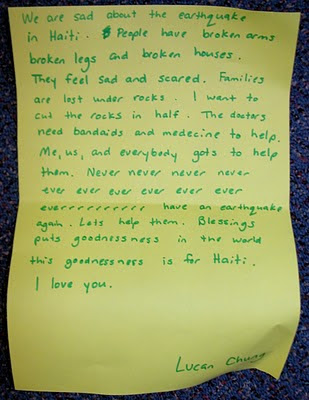 We are sad about the earthquake
in Haiti. People have broken arms
broken legs and broken houses.
They feel sad and scared. Families
are lost under rocks. I want to
cut the rocks in half. The doctors
need bandaids and medecine to help.
Me, us, and everybody gots to help
them. Never never never never
ever ever ever ever ever ever
everrrrrrrrrrrr have an earthquake
again. Lets help them. Blessings
puts goodnessness in the world
this goodnessness is for Haiti.
I love you.
Lucan Chung